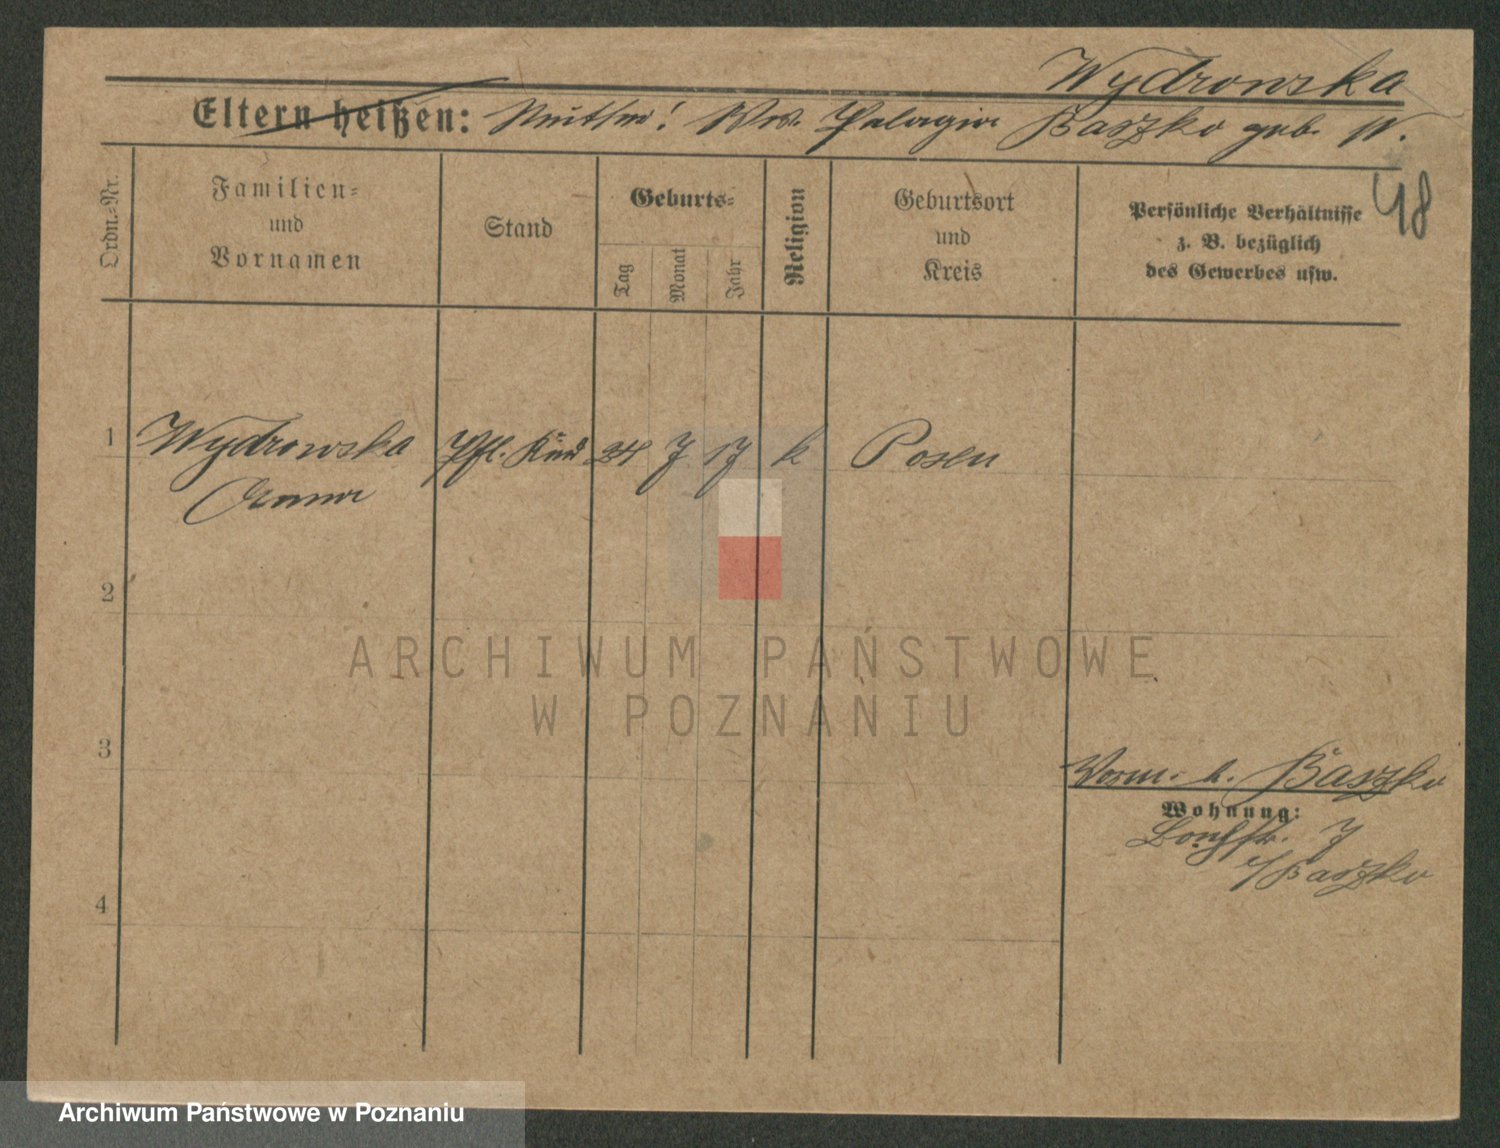 Wydrowska
Eltern heißen: Mutter! Ww. Pelagia Baszko geb. W.
Ordn.=Nr.
Familien=
und
Vornamen
Stand
Geburts=
Tag
Monat
Jahr
Religion
Geburtsort
und
Kreis
Persönliche Verhältnisse
z. B. bezüglich
des Gewerbes usw.
48
1
Wydrowska Pfl. Kind 24 7 17 k Posen
2
ARCHIWUM PAŃSTWOWE
W POZNANIU
3
Vorm. h. Baszko
Wohnung:
7
b/Baszko
4
Archiwum Państwowe w Poznaniu